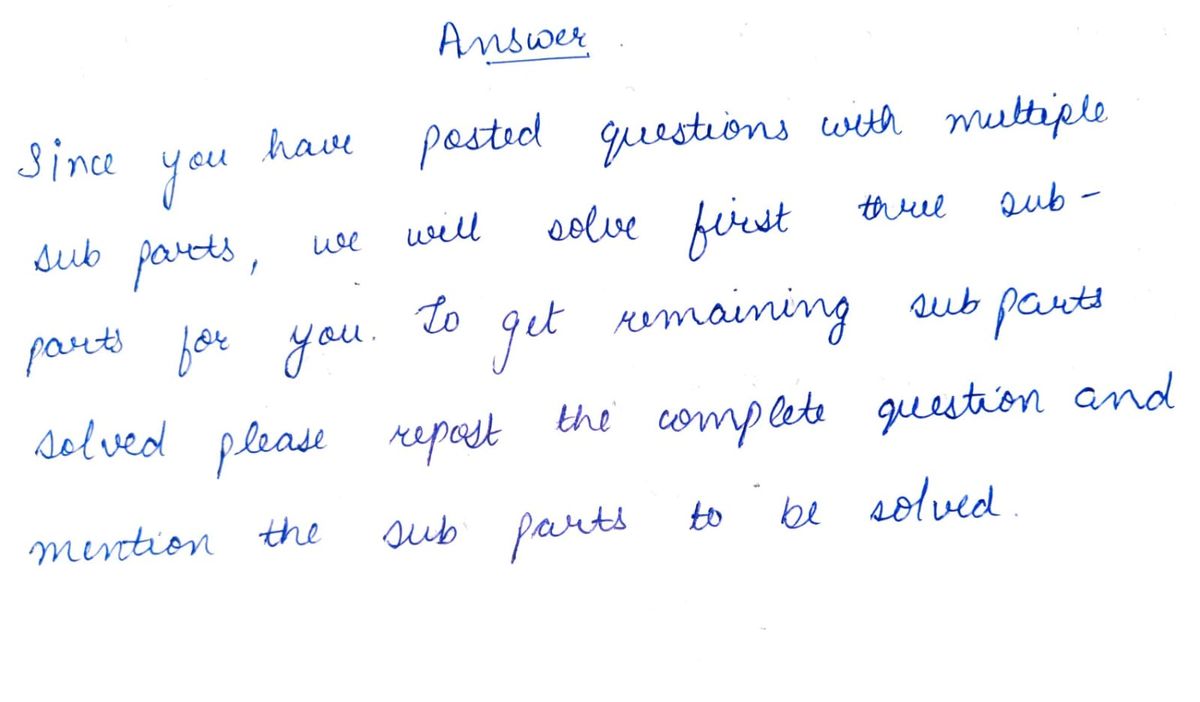 Answer
Since you have posted questions with multiple
sub parts, we will solve first three sub-
parts for you. To get remaining sub parts
solved please repost the complete question and
mention the sub parts to be solved.